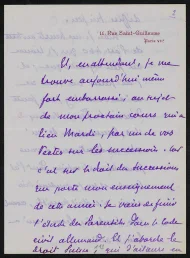 2
11, Rue Saint-Guillaume
Paris VIIe
Et, malheureux, je me
trouve aujourd'hui même
fort embarrassé, au sujet
de mon prochain cours qui a
lieu Mardi, par un de vos
textes sur les successions.
c'est sur le droit des successions
que porte mon enseignement
de cette année. Je viens de finir
l'étude des Parentèles dans le code
civil allemand. Et j'aborde le
droit qui d'ailleurs en